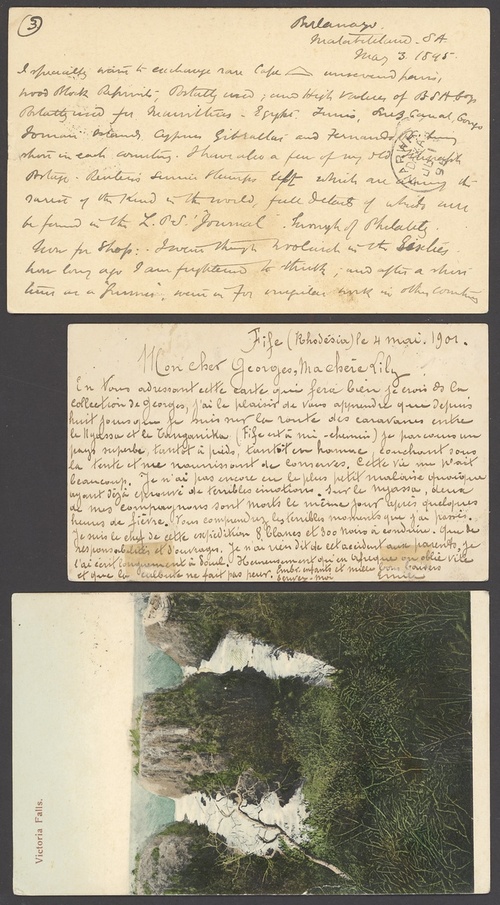 3
Bulawayo.
Matabeleland. S.A.
May 3. 1895.
I specially want to exchange rare Cape unsevered pairs,
wood Block Reprints, Postally used; and High Values of B.S.A. Coy
Postally used for Mauritius. Egypt. Tunis, Suez Canal, Congo
Ionian Islands, Cyprus Gibraltar and Fernando
short in each country. I have also a few of my old Telegraph
left which are among the
rarest of the kind in the world, full details of which were
be found in the L.P.S. "Journal".
Now for Shop:- I went through Woolwich in the Sixties.
how long ago I am frightened to think; and after a short
time as a went in for irregular work in other countries
Fife (Rhodésia) le 4 mai. 1901.
Mon cher Georges, Ma chère Lily
En vous adressant cette carte qui fera bien je crois ds la
collection de Georges, j'ai le plaisir de vous apprendre que depuis
huit jours que je suis sur la route des caravanes entre
le Nyassa et le Tanganika (Fife est à mi-chemin) je parcours un
pays superbe, tantôt à pieds, tantôt en hamac, couchant sous
la tente et me nourrissant de conserves. Cette vie me plait
beaucoup. Je n'ai pas encore eu le plus petit malaise quoique
ayant déjà éprouvé de terribles émotions. Sur le Nyassa, deux
de mes compagnons sont morts le même jour après quelques
heures de fièvre. Vous comprendrez les terribles moments que j'ai passés.
Je suis le chef de cette expédition 8 blancs et 300 noirs à conduire. Que de
responsabilités et d'ouvrages. Je n'ai rien dit de cet accident aux parents, je
l'ai écrit longuement à Heureusement qu'en Afrique on oublie vite
et que la ne fait pas peur. Embr. enfants et mille bons baisers
écrivez-moi Emile
Victoria Falls.